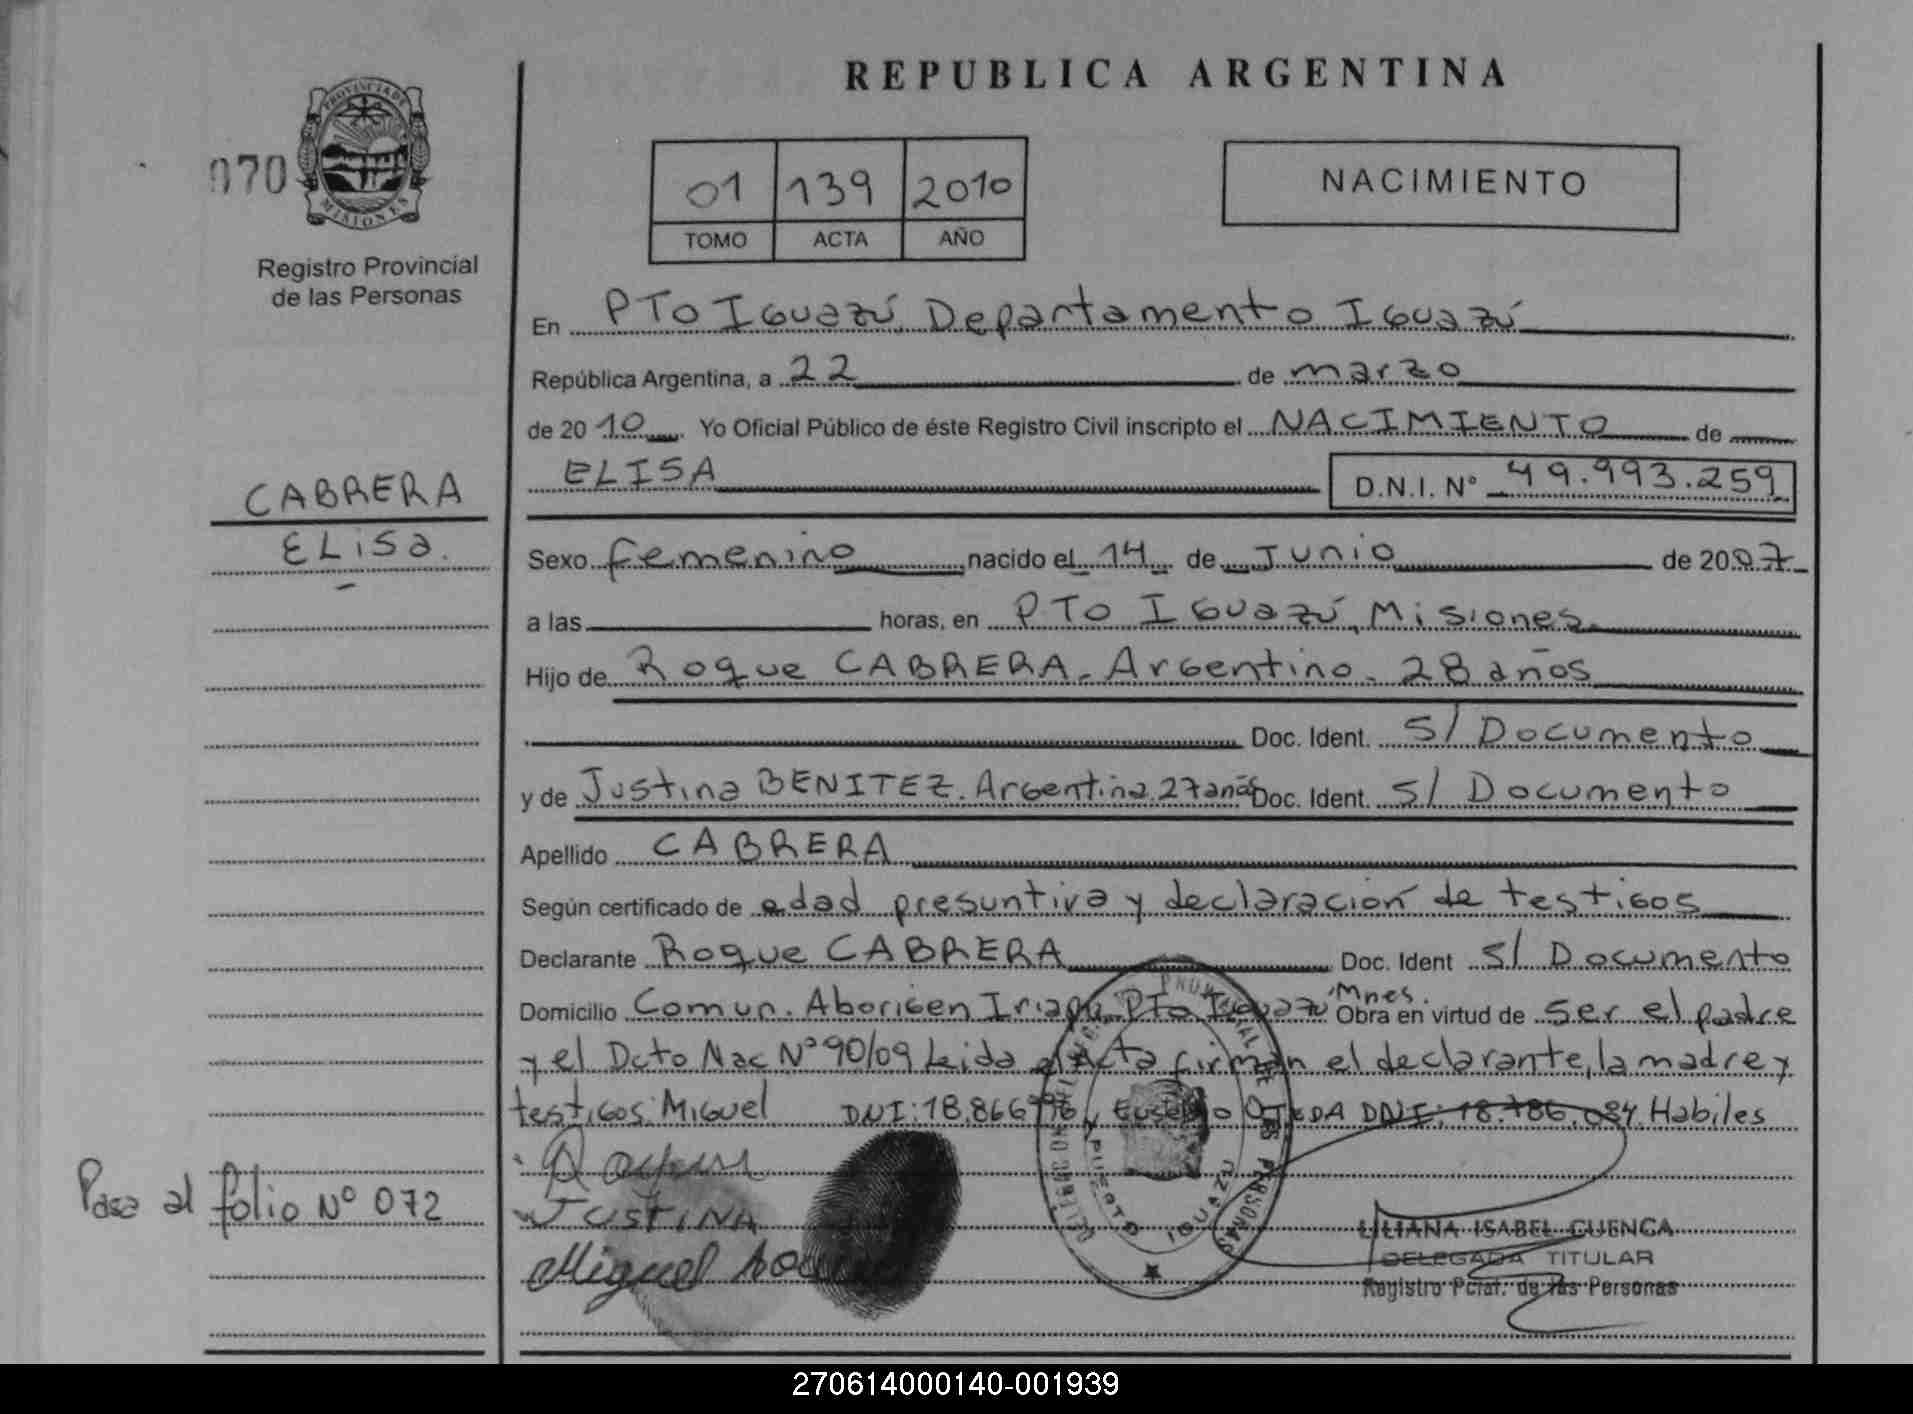 REPUBLICA ARGENTINA
070
PROVINCIA DE
MISIONES
Registro Provincial
de las Personas
01 139 2010
TOMO ACTA AÑO
NACIMIENTO
En PTo Iguazú Departamento Iguazú
República Argentina, a 22 de marzo
de 2010 Yo Oficial Público de éste Registro Civil inscripto el NACIMIENTO de
ELISA D.N.I. N° 49.993.259
CABRERA
ELisa.
Sexo femenino nacido el 14 de Junio de 2007
a las horas, en PTo Iguazú, Misiones.
Hijo de Roque CABRERA. Argentino. 28 años
Doc. Ident. S/ Documento
y de Justina BENITEZ. Argentina. 27 años Doc. Ident. S/ Documento
Apellido CABRERA
Según certificado de edad presuntiva y declaración de testigos
Declarante Roque CABRERA Doc. Ident S/ Documento
Domicilio Comun. Aborigen Iriapú PTo Iguazú Mnes. Obra en virtud de ser el padre
y el Dcto Nac N° 90/09 Leida el Acta firman el declarante, la madre y
testigos: Miguel DNI: 18.866996 y Eusebio OJEDA DNI: 18.786.084. Habiles
Pasa al folio N° 072
JUSTINA
Miguel
PUERTO IGUAZU
LILIANA ISABEL CUENCA
DELEGADA TITULAR
Registro Pcial. de las Personas
270614000140-001939